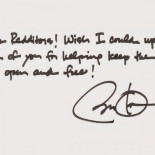 Redditors! Wish I could up
of you for helping keep the
open and free!